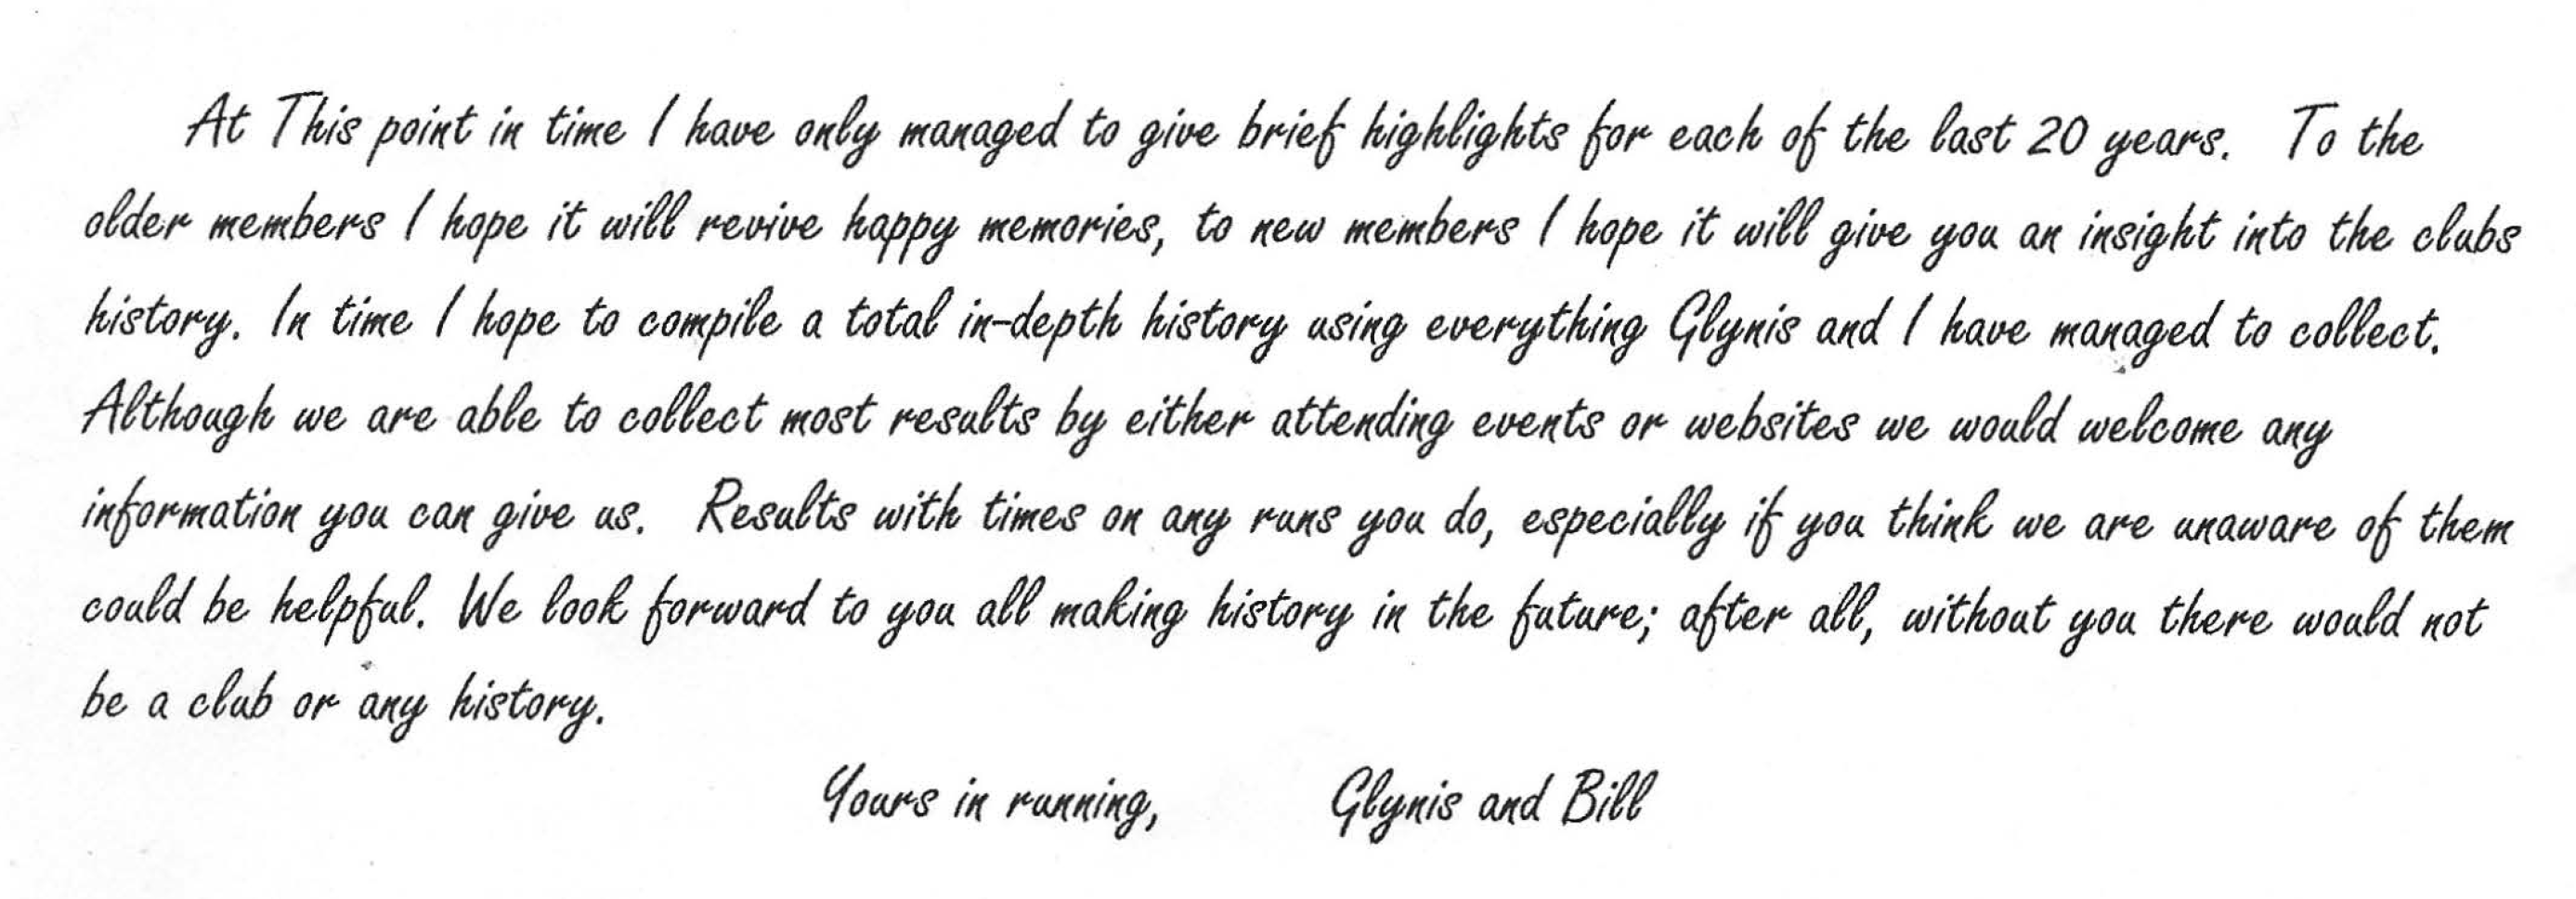 At This point in time I have only managed to give brief highlights for each of the last 20 years. To the
older members I hope it will revive happy memories, to new members I hope it will give you an insight into the clubs
history. In time I hope to compile a total in-depth history using everything Glynis and I have managed to collect.
Although we are able to collect most results by either attending events or websites we would welcome any
information you can give us. Results with times on any runs you do, especially if you think we are unaware of them
could be helpful. We look forward to you all making history in the future; after all, without you there would not
be a club or any history.
Yours in running, Glynis and Bill